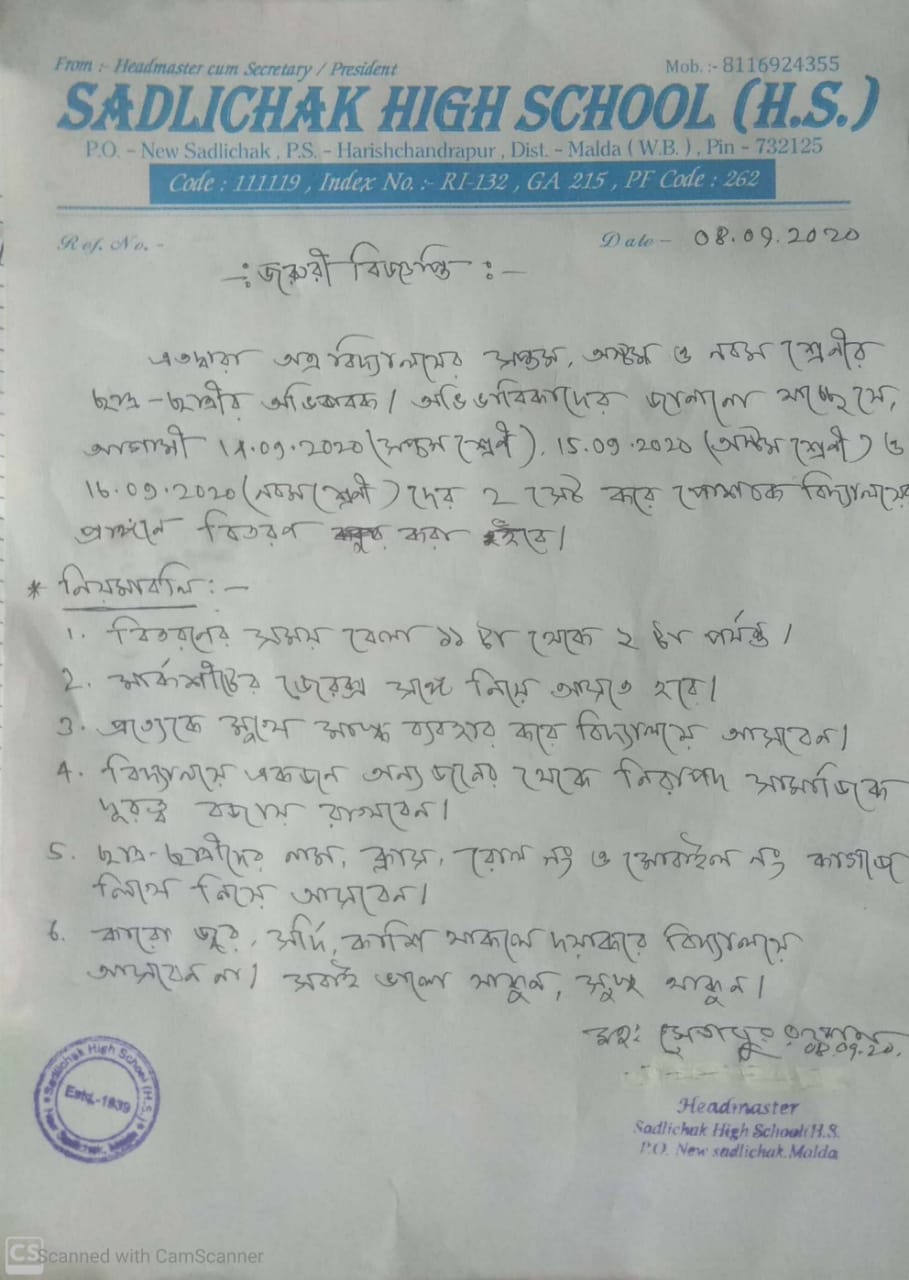 From :- Headmaster cum Secretary / President
Mob. :- 8116924355
SADLICHAK HIGH SCHOOL (H.S.)
P.O. - New Sadlichak , P.S. - Harishchandrapur , Dist. - Malda ( W.B. ) , Pin - 732125
Code : 111119 , Index No. :- RI-132 , GA 215 , PF Code : 262
Ref. No. -
Date - 08.09.2020
-ঃ জরুরী বিজ্ঞপ্তি ঃ-
এতদ্বারা অত্র বিদ্যালয়ের সপ্তম, অষ্টম ও নবম শ্রেনীর
ছাত্র-ছাত্রীর অভিভাবক/ অভিভাবিকাদের জানানো যাচ্ছে যে,
আগামী 14.09.2020 (সপ্তম শ্রেণী), 15.09.2020 (অষ্টম শ্রেণী) ও
16.09.2020 (নবম শ্রেণী) দের 2 সেট করে পোশাক বিদ্যালয়ের
প্রাঙ্গনে বিতরণ করা হইবে।
* নিয়মাবলি :-
1. বিতরনের সময় বেলা ১১ টা থেকে ২ টা পর্যন্ত।
2. মার্কশীটের জেরক্স সঙ্গে নিয়ে আসতে হবে।
3. প্রত্যেকে মুখে মাস্ক ব্যবহার করে বিদ্যালয়ে আসবেন।
4. বিদ্যালয়ে একজন অন্যজনের থেকে নিরাপদ সামাজিক
দূরত্ব বজায় রাখবেন।
5. ছাত্র-ছাত্রীদের নাম, ক্লাস, রোল নং ও মোবাইল নং কাগজে
লিখে নিয়ে আসবেন।
6. কারো জ্বর, সর্দি, কাশি থাকলে দয়াকরে বিদ্যালয়ে
আসবেন না। সবাই ভালো থাকুন, সুস্থ থাকুন।
08.09.20.
Sadlichak High School (H.S.)
Estd.-1939
New Sadlichak, Malda
Headmaster
Sadlichak High School(H.S.
P.O. New sadlichak.Malda
CS Scanned with CamScanner